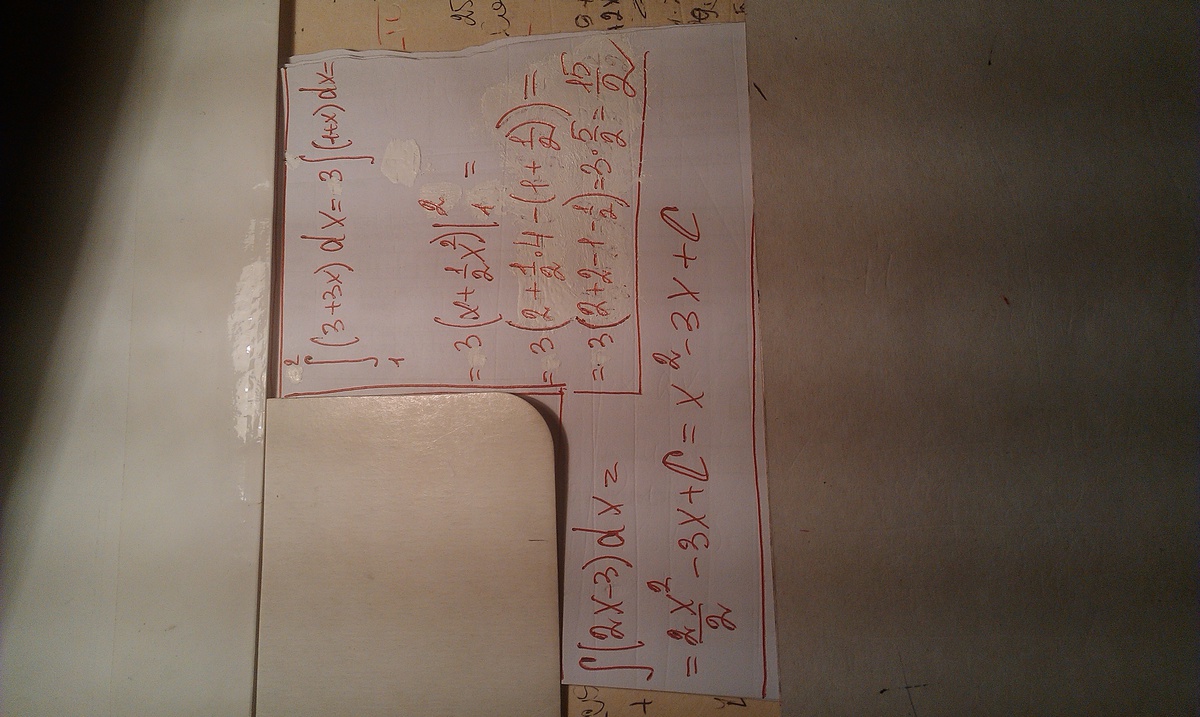 ∫₁² (3+3x) dx = 3 ∫ (1+x) dx =
= 3 (x + 1/2 x²) |₁² =
= 3 (2 + 1/2 · 4 - (1 + 1/2)) =
= 3 (2 + 2 - 1 - 1/2) = 3 · 5/2 = 15/2
∫ (2x-3) dx =
= 2x²/2 - 3x + C = x² - 3x + C